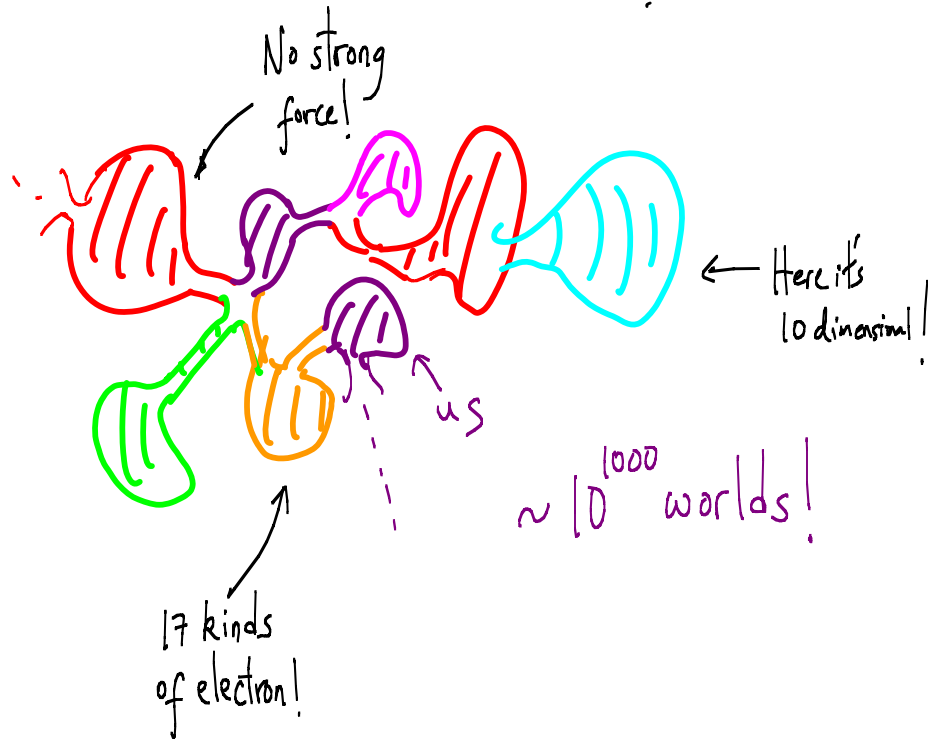 No strong
force!
Here it's
10 dimensional!
us
~ 10^1000 worlds!
17 kinds
of electron!